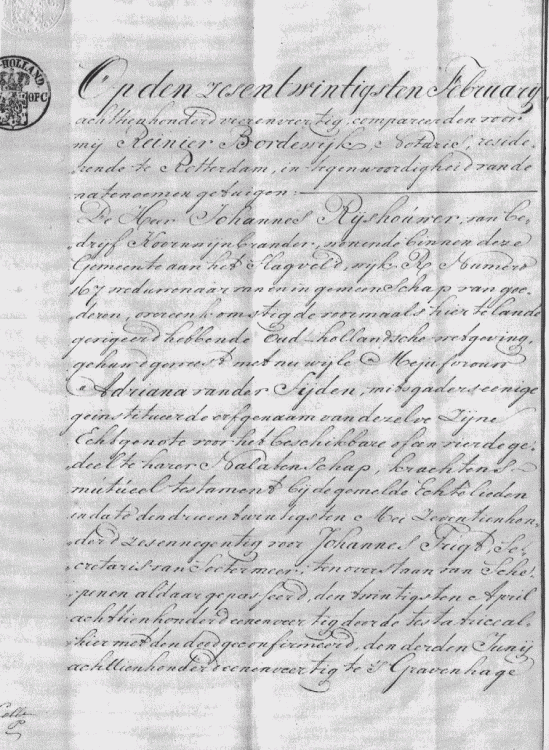 HOLLAND
Op den zesentwintigsten February
achttienhonderd vierenveertig, compareerden voor
mij Reinier Bordewijk, Notaris, reside-
rende te Rotterdam, in tegenwoordigheid van de
natenoemen getuigen:
De Heer Johannes Ryshouwer, van be-
drijf Koornwijnbrander, wonende binnen deze
Gemeente aan het Hagveld, wijk R, Numero
167 weduwenaar van en in gemeenschap van goe-
deren, overeenkomstig de voormaals hier te lande
gevigeerd hebbende Oud-hollandsche wetgeving,
gehuwd geweest met nu wijle Mejufvrouw
Adriana van der Sijden, mitsgaders eenige
geinstitueerde erfgenaam van dezelve zijne
Echtgenote voor het beschikbare of een vierde ge-
deelte harer Nalatenschap, krachtens
mutueel testament bij de gemelde Echtelieden
in dato den drieentwintigsten Mei zeventienhon-
derd zesennegentig voor Johannes Trigt, Se-
cretaris van Soetermeer, ten overstaan van Sche-
penen aldaar gepasseerd, den twintigsten April
achttienhonderd eenenveertig door de testatrice al-
hier met den dood geconfirmeerd, den derden Junij
achttienhonderd eenenveertig te 's Gravenhage